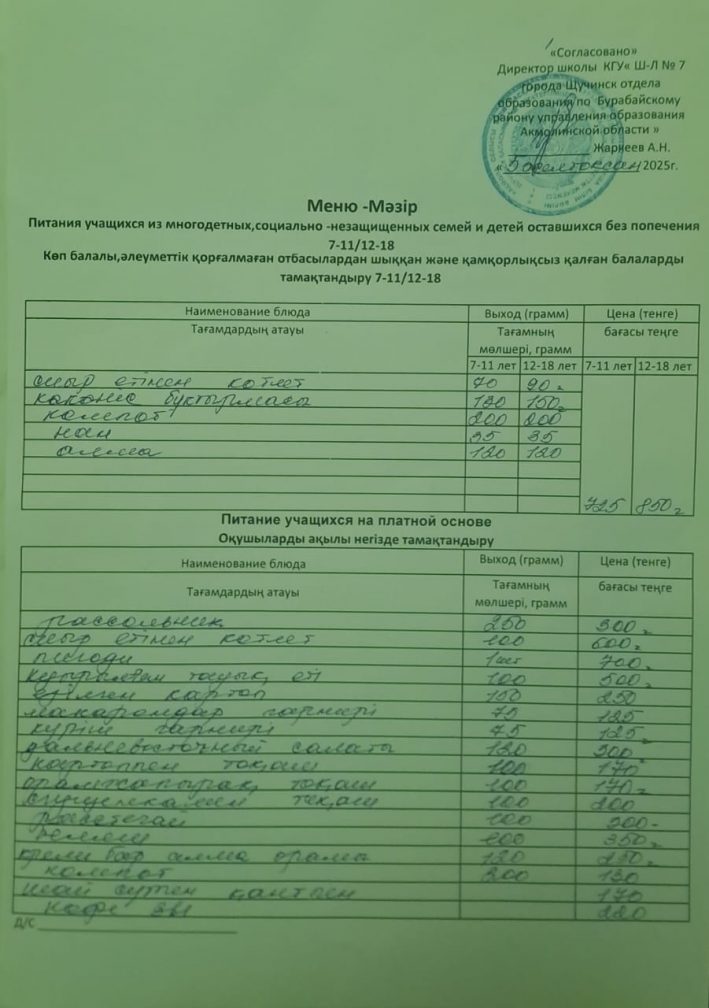 «Согласовано»
Директор школы КГУ« Ш-Л № 7
города Щучинск отдела
образования по Бурабайскому
району управления образования
Акмолинской области »
Жарнеев А.Н.
« 5 » желтоқсан 2025г.
Меню -Мәзір
Питания учащихся из многодетных,социально -незащищенных семей и детей оставшихся без попечения
7-11/12-18
Көп балалы,әлеуметтік қорғалмаған отбасылардан шыққан және қамқорлықсыз қалған балаларды
тамақтандыру 7-11/12-18
Наименование блюда Выход (грамм) Цена (тенге)
Тағамдардың атауы Тағамның мөлшері, грамм бағасы теңге
7-11 лет 12-18 лет 7-11 лет 12-18 лет
сиыр етінен котлет 70 90г
көкөніс бұқтырмасы 130 150г
компот 200 200
нан 35 35
алма 120 120
725 850г
Питание учащихся на платной основе
Оқушыларды ақылы негізде тамақтандыру
Наименование блюда Выход (грамм) Цена (тенге)
Тағамдардың атауы Тағамның мөлшері, грамм бағасы теңге
рассольник 250 300г
сиыр етінен котлет 100 600г
пигоди 1шт 700г
қуырылған тауық еті 100 500г
езілген картоп 150 250
макарондар гарнирі 75 125
күріш гарнирі 75 125г
дальневосточный салаты 120 300
картоппен тоқаш 100 170
оралғжапырақ тоқаш 100 170г
сгущенкамен тоқаш 100 200
расстегай 100 300
100 350г
кремі бар алма орамы 120 250г
компот 200 130
шай сүтпен қантпен 170
кофе 3в1 220
Д/С